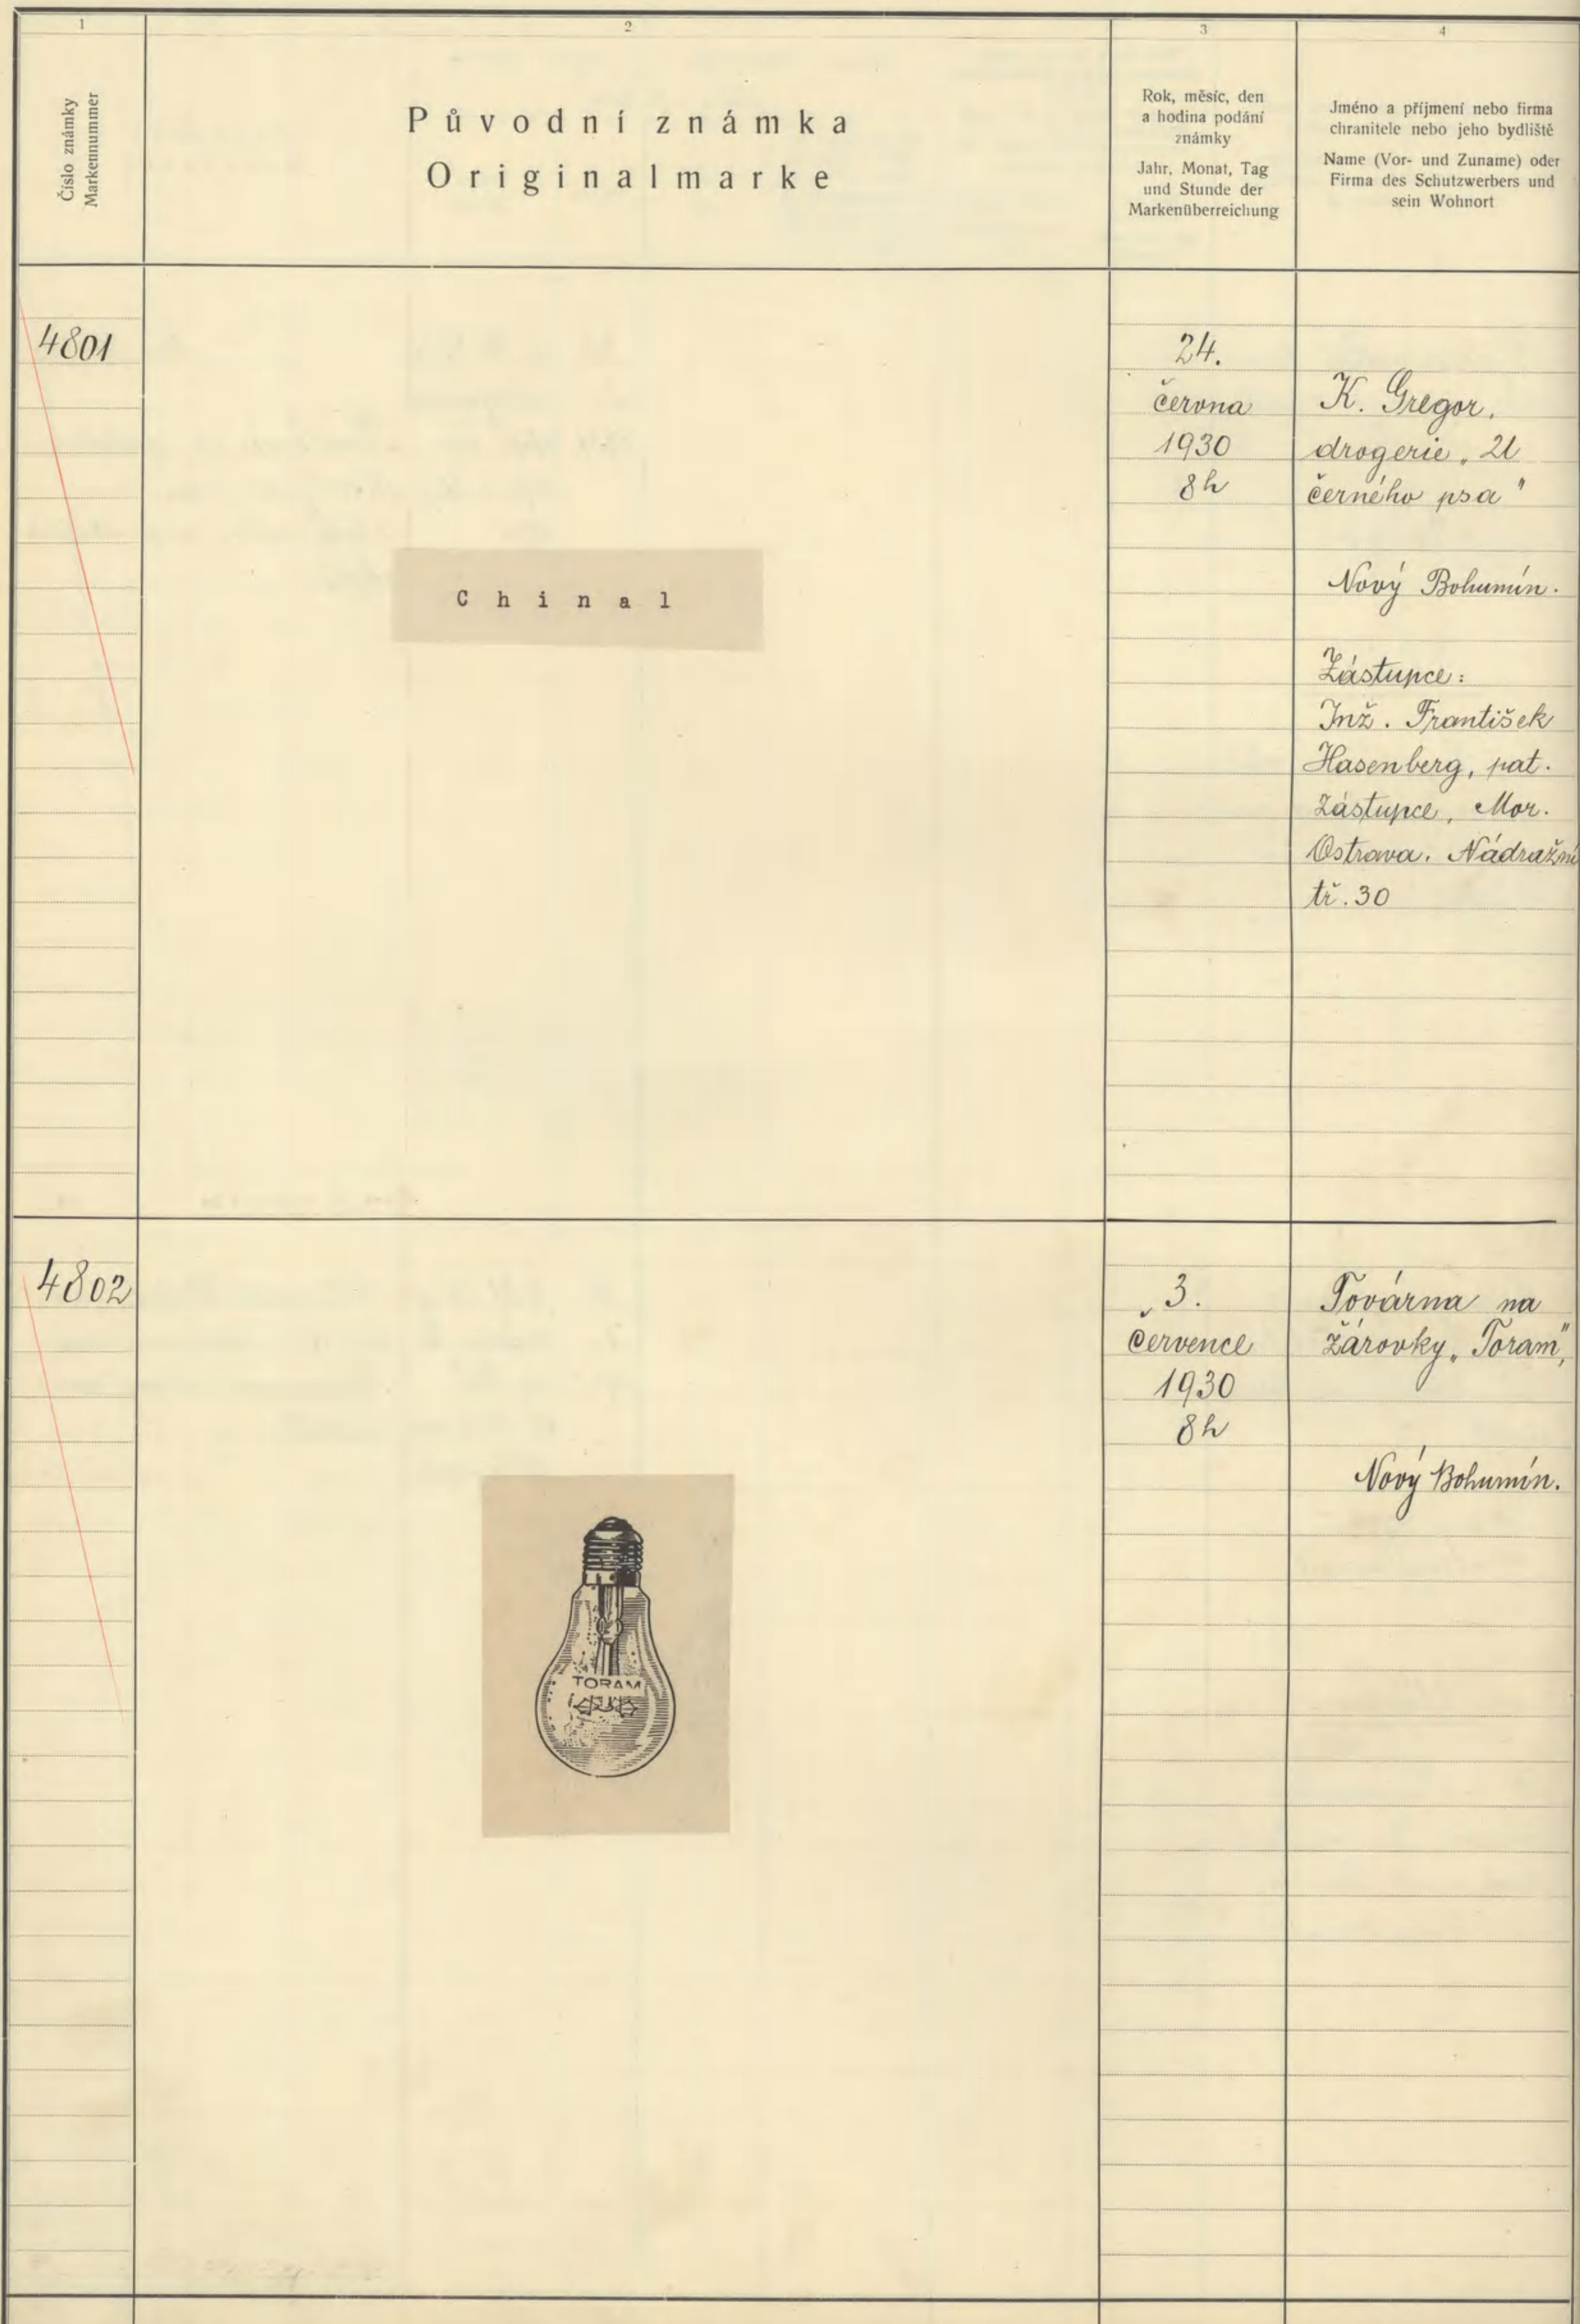 1
2
3
4
Číslo známky
Markennummer
Původní známka
Originalmarke
Rok, měsíc, den
a hodina podání
známky
Jahr, Monat, Tag
und Stunde der
Markenüberreichung
Jméno a příjmení nebo firma
chranitele nebo jeho bydliště
Name (Vor- und Zuname) oder
Firma des Schutzwerbers und
sein Wohnort
4801
Chinal
24.
června
1930
8h
K. Gregor,
drogerie „U
černého psa"
Nový Bohumín.
Zástupce:
Inž. František
Hasenberg, pat.
zástupce, Mor.
Ostrava. Nádražní
tř. 30
4802
TORAM
3.
července
1930
8h
Továrna na
žárovky „Toram",
Nový Bohumín.